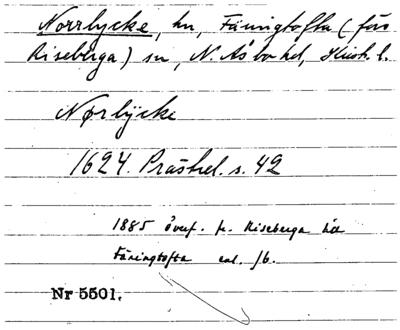 Norrlycke, hn, Färingtofta (förr
Riseberga) sn, N. Åsbo hd, Krist. l.
Nørlÿcke
1624. Prästrel. s. 42
1885 överf. fr. Riseberga till
Färingtofta enl. jb.
Nr 5501.